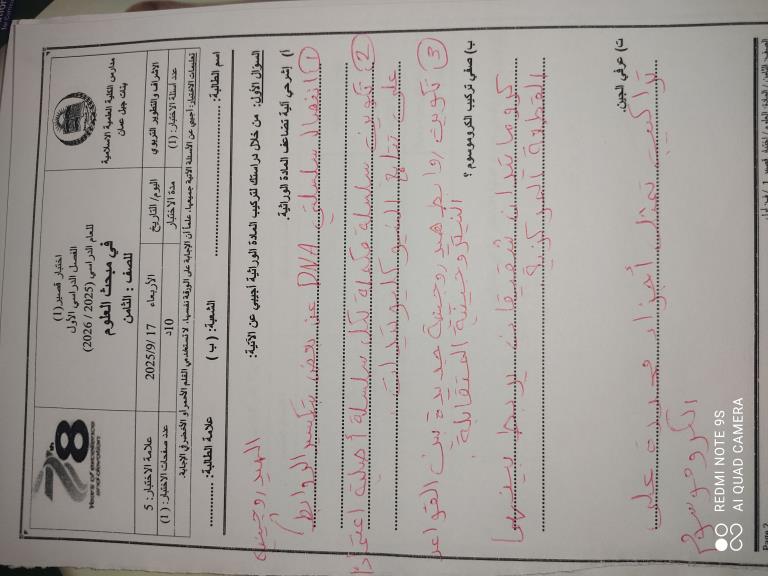 مدارس الكلية العلمية الاسلامية
بنات جبل عمان
اختبار قصير(1)
الفصل الدراسي الأول
للعام الدراسي (2025 / 2026)
في مبحث العلوم
للصف : الثامن
78
Years of excellence
and devotion
الاشراف والتطوير التربوي
اليوم/ التاريخ
الأربعاء 2025/9/ 17
علامة الاختبار: 5
عدد اسئلة الاختبار: (1)
مدة الاختبار
10د
عدد صفحات الاختبار: (1)
تعليمات الاختبار: أجيبي عن الأسئلة الآتية جميعها، علما أن الإجابة على الورقة نفسها، لا تستخدمي القلم الأحمر أو الأخضر في الإجابة.
اسم الطالبة: ............ الشعبة: ( ب ) علامة الطالبة: .........
السؤال الأول: من خلال دراستك لتركيب المادة الوراثية أجيبي عن الآتية:
أ) إشرحي آلية تضاعف المادة الوراثية.
1 انفصال سلسلتي DNA عن بعض بتكسير الروابط
الهيدروجينية
2 تكوين سلسلة مكملة لكل سلسلة أصلية اعتمادًا
على تتابع النيوكليوتيدات
3 تكوين روابط هيدروجينية جديدة بين القواعد
النيتروجينية المتقابلة
ب) صفي تركيب الكروموسوم ؟
كروماتيدان شقيقان يربط بينهما
القطعة المركزية
ت) عرفي الجين.
تراكيب تمثل أجزاء محددة على
الكروموسوم
REDMI NOTE 9S
AI QUAD CAMERA